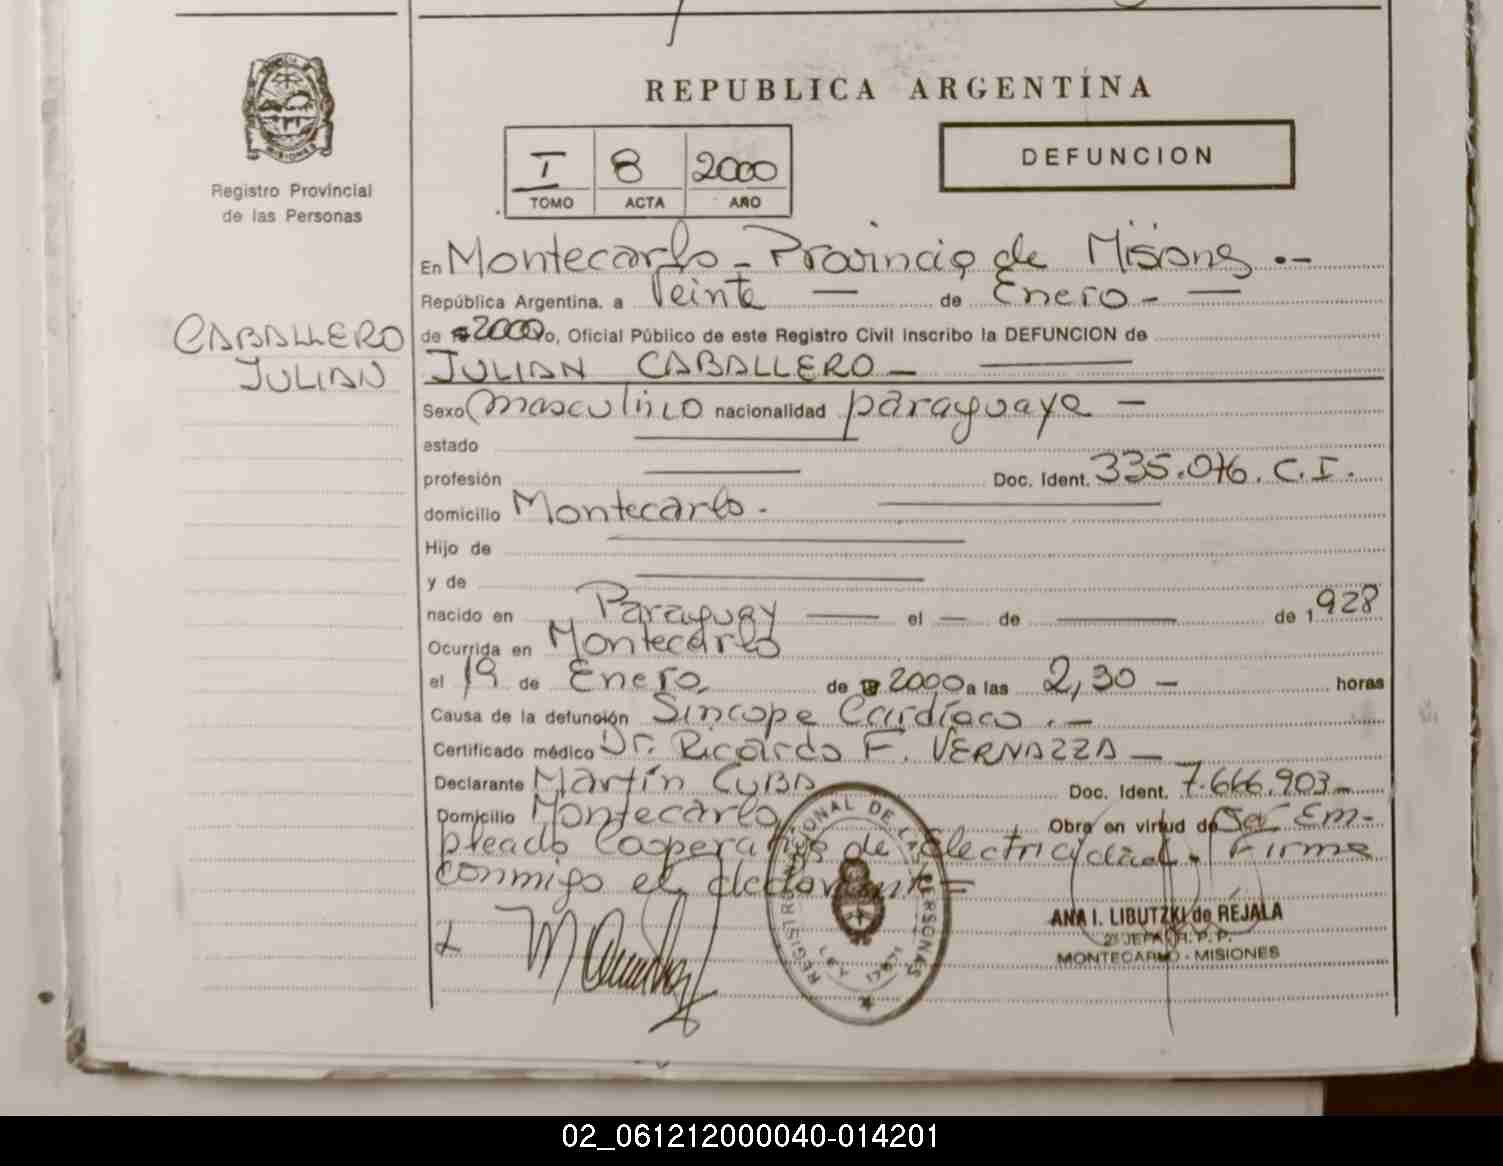 REPUBLICA ARGENTINA
MISIONES
Registro Provincial
de las Personas
I 8 2000
TOMO ACTA AÑO
DEFUNCION
En Montecarlo - Provincia de Misiones .-
República Argentina. a Veinte — de Enero - —
de 2000 o, Oficial Público de este Registro Civil inscribo la DEFUNCION de
CABALLERO
JULIAN
JULIAN CABALLERO - —
Sexo masculino nacionalidad paraguaya —
estado —
profesión — Doc. Ident. 335.076. C.I.
domicilio Montecarlo. —
Hijo de —
y de —
nacido en Paraguay — el — de — de 1928
Ocurrida en Montecarlo
el 19 de Enero de 2000 a las 2,30 — horas
Causa de la defunción Sincope Cardíaco . —
Certificado médico Dr. Ricardo F. VERNAZZA —
Declarante Martín CUBA Doc. Ident. 7.646.903 —
Domicilio Montecarlo Obra en virtud de Ser Em-
pleado Cooperativa de Electricidad. Firma
conmigo el declarante =
ANA I. LIBUTZKI de REJALA
2º JEFA R. P. P.
MONTECARLO - MISIONES
02_061212000040-014201